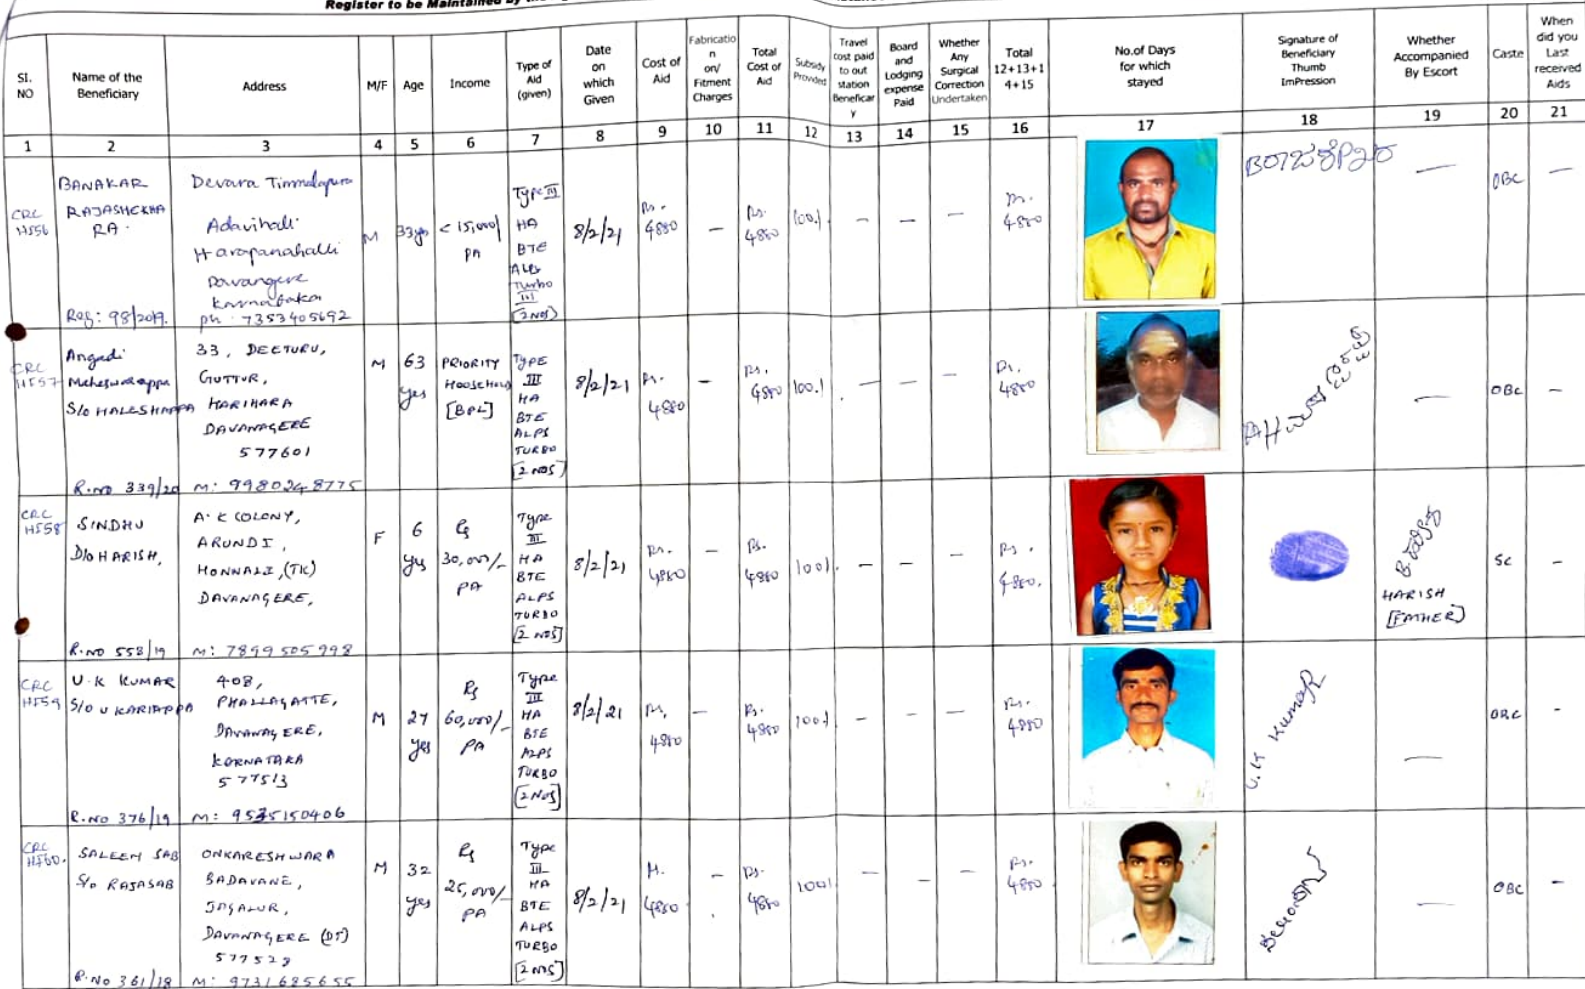 Register to be Maintained by the
Sl. NO
Name of the Beneficiary
Address
M/F
Age
Income
Type of Aid (given)
Date on which Given
Cost of Aid
Fabricatio n on/ Fitment Charges
Total Cost of Aid
Subsidy Provided
Travel cost paid to out station Beneficar y
Board and Lodging expense Paid
Whether Any Surgical Correction Undertaken
Total 12+13+1 4+15
No.of Days for which stayed
Signature of Beneficiary Thumb ImPression
Whether Accompanied By Escort
Caste
When did you Last received Aids
1 2 3 4 5 6 7 8 9 10 11 12 13 14 15 16 17 18 19 20 21
CRC H556
BANAKAR
RAJASHEKHA
RA.
Reg: 98/2019.
Devara Timmalapura
Adavihalli
Harapanahalli
Davangere
Karnataka
ph: 7353405692
M
33yrs
< 15,000/ PA
Type III
HA
BTE
ALPS
Turbo
III
(2 NOS)
8/2/21
Rs. 4880
–
Rs. 4880
100%
– – –
Rs. 4880
—
OBC
—
CRC H557
Angadi
Maheswarappa
S/o HALESHAPPA
R.NO 339/20
33, DEETURU,
GUTTUR,
HARIHARA
DAVANAGERE
577601
M: 9980248775
M
63 yrs
PRIORITY
HOUSEHOLD
[BPL]
TYPE
III
HA
BTE
ALPS
TURBO
[2 NOS]
8/2/21
Rs. 4880
–
Rs. 4880
100%
– – –
Rs. 4880
—
OBC
–
CRC H558
SINDHU
D/o HARISH,
R.NO 558/19
A.K COLONY,
ARUNDI,
HONNALI, (TK)
DAVANAGERE,
M: 7899505998
F
6 yrs
Rs 30,000/- PA
Type
III
HA
BTE
ALPS
TURBO
[2 NOS]
8/2/21
Rs. 4880
–
Rs. 4880
100%
– – –
Rs. 4880.
HARISH
[FATHER]
SC
–
CRC H559
U.K KUMAR
S/O U KARIAPPA
R.NO 376/19
408,
PHALLAGATTE,
DAVANAGERE,
KARNATAKA
577513
M: 9535150406
M
27 yrs
Rs 60,000/- PA
Type
III
HA
BTE
ALPS
TURBO
[2 NOS]
8/2/21
Rs. 4880
–
Rs. 4880
100%
– – –
Rs. 4880
U.K Kumar
—
OBC
–
CRC H560.
SALEEM SAB
S/o RAJASAB
R.No 361/18
ONKARESHWARA
BADAVANE,
JAGALUR,
DAVANAGERE (DT)
577528
M: 9731685655
M
32 yrs
Rs 25,000/- PA
Type
III
HA
BTE
ALPS
TURBO
[2 NOS]
8/2/21
Rs. 4880
–
Rs. 4880
100%
– – –
Rs. 4880
—
OBC
–